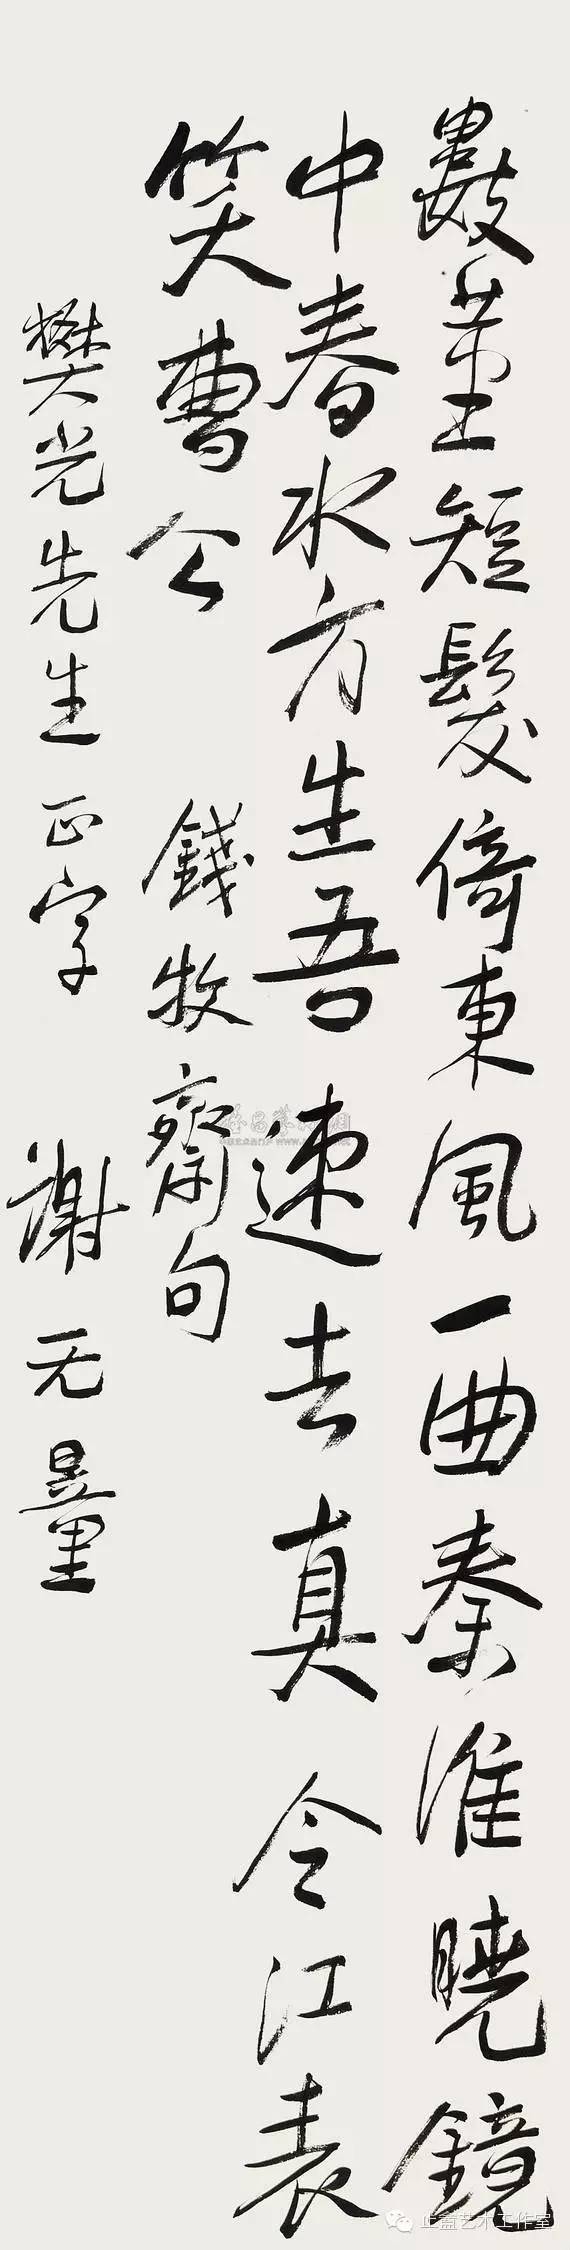 數莖短髮倚東風一曲秦淮曉鏡
中春水方生吾速去真令江表
笑曹公
錢牧齋句
樊光先生正字
謝无量
止盖艺术工作室